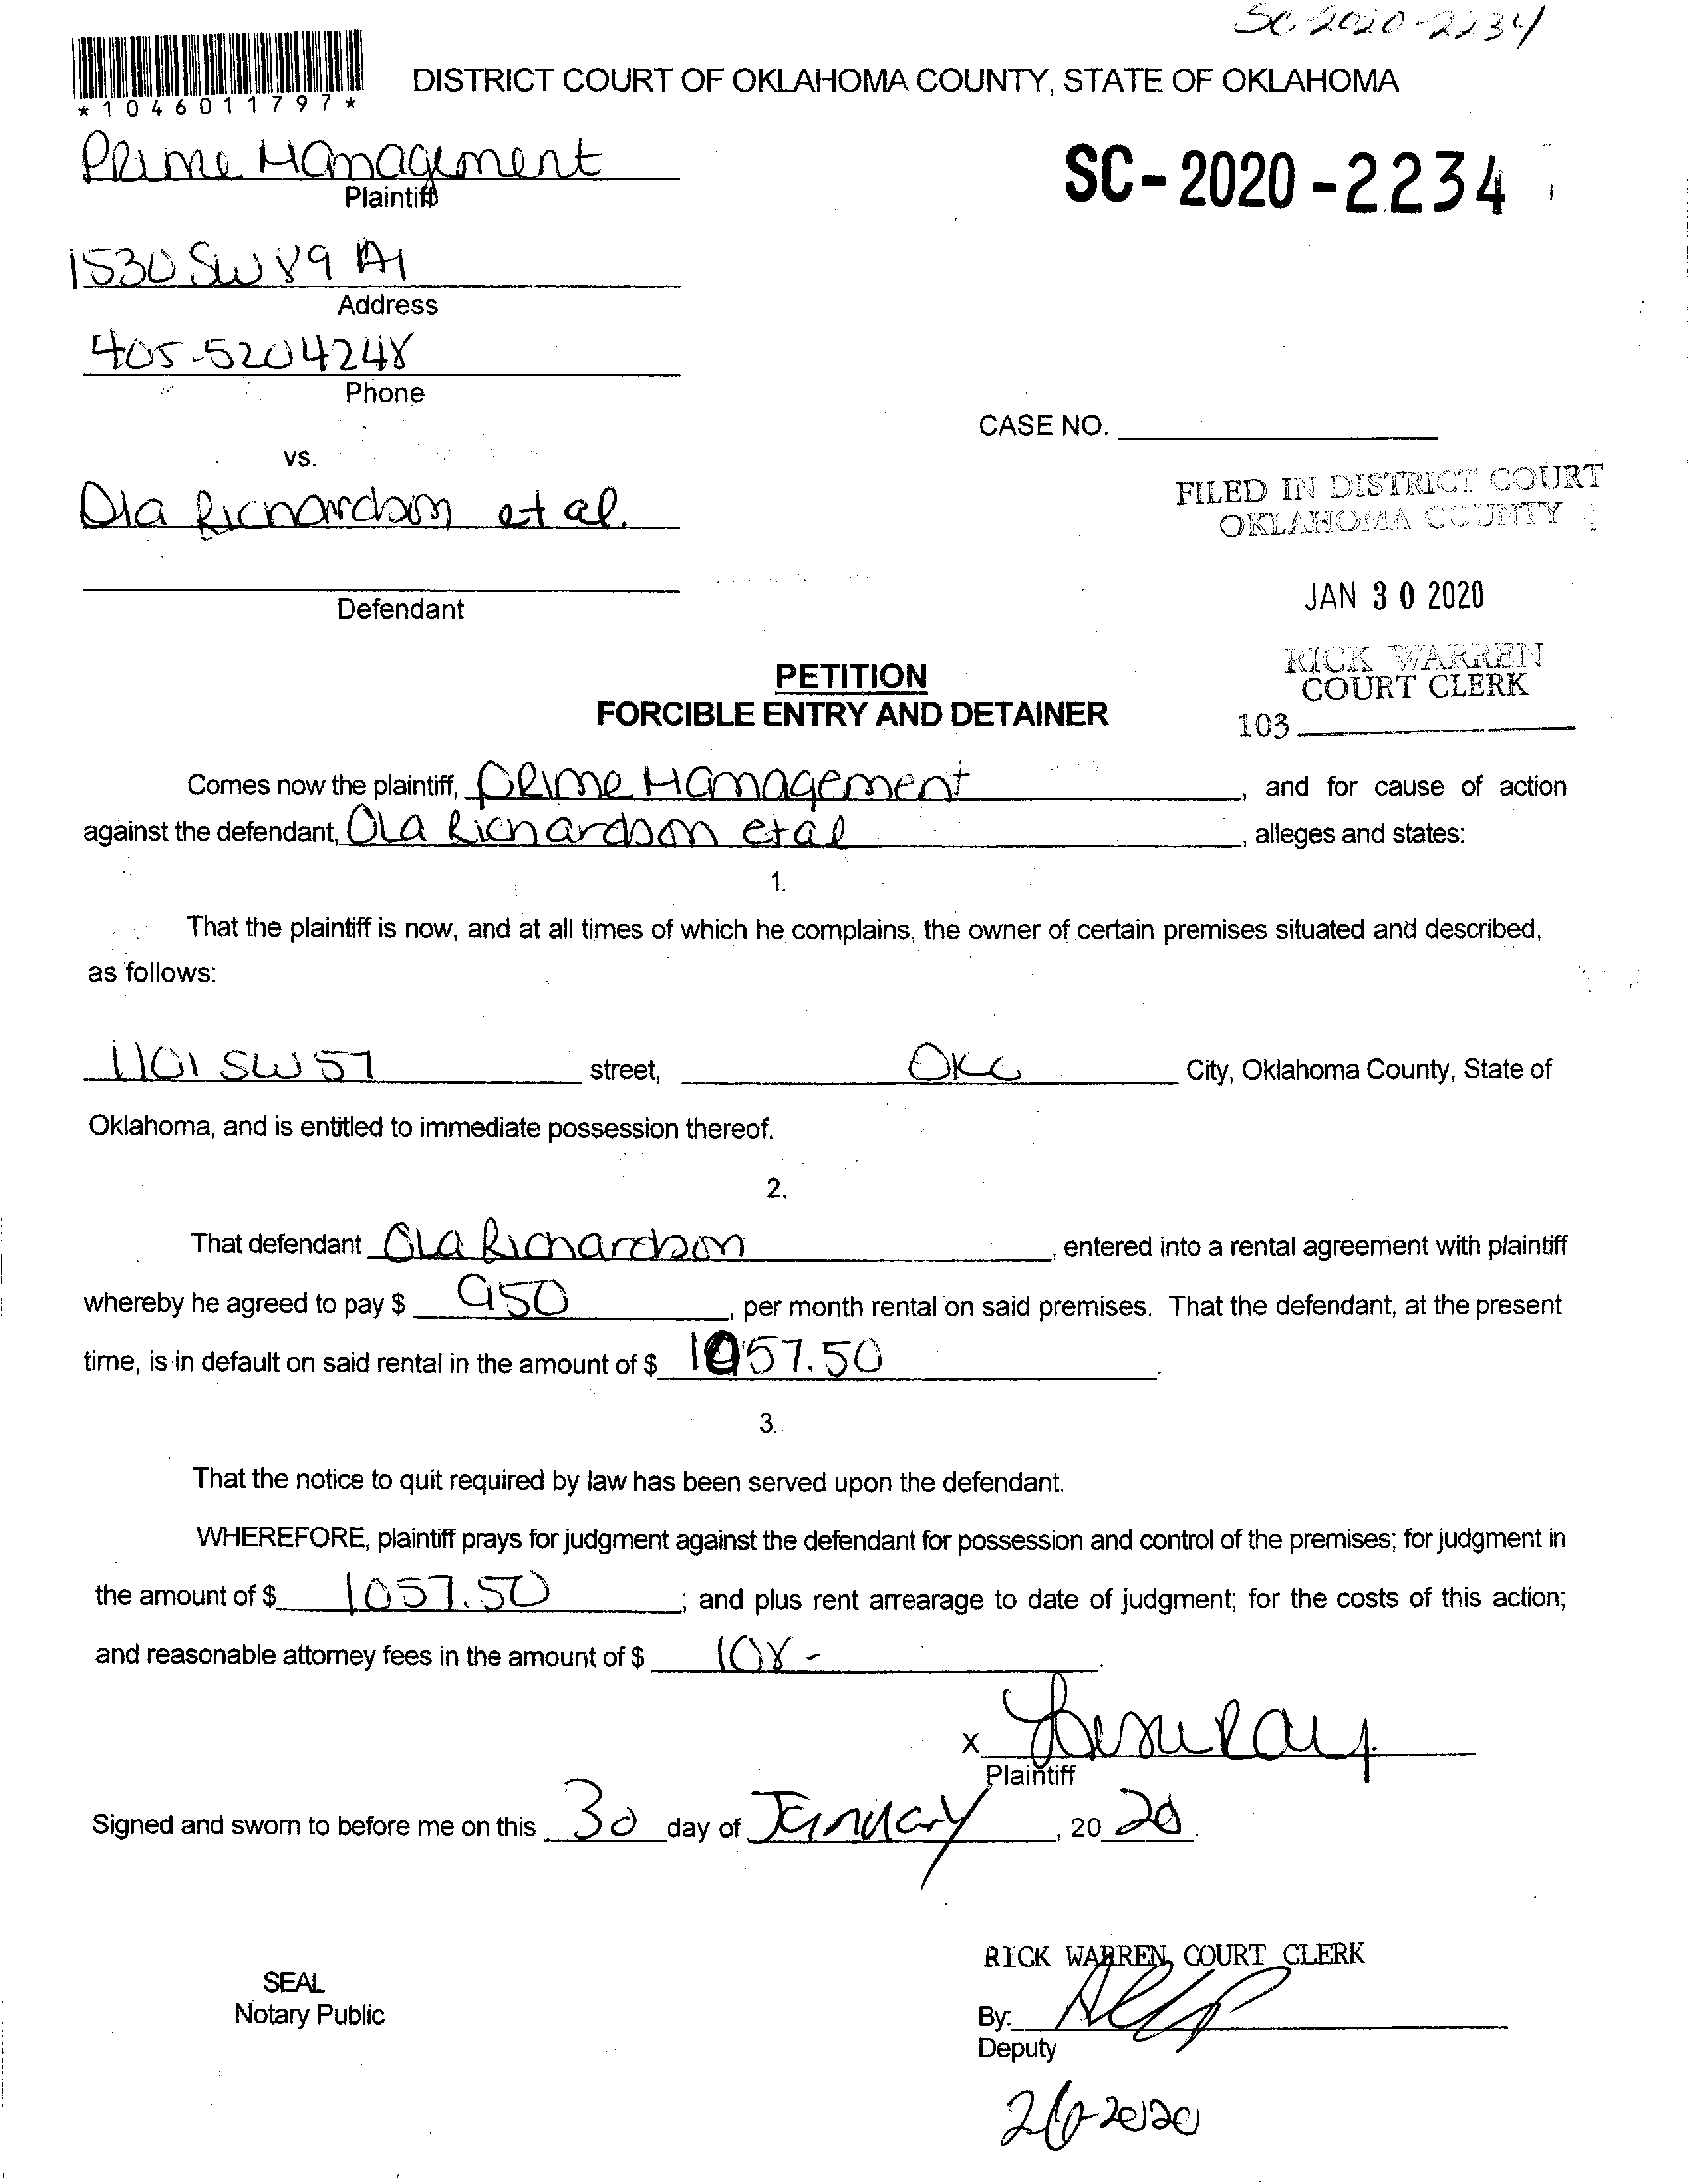 SC-2020-2234
*1046011797*
DISTRICT COURT OF OKLAHOMA COUNTY, STATE OF OKLAHOMA
Prime Management
Plaintiff
SC-2020-2234
1530 SW 89 A1
Address
405-5204248
Phone
CASE NO.
vs.
Ola Richardson et al.
FILED IN DISTRICT COURT
OKLAHOMA COUNTY
Defendant
JAN 30 2020
PETITION
FORCIBLE ENTRY AND DETAINER
RICK WARREN
COURT CLERK
103
Comes now the plaintiff, Prime Management, and for cause of action
against the defendant, Ola Richardson et al, alleges and states:
1.
That the plaintiff is now, and at all times of which he complains, the owner of certain premises situated and described,
as follows:
1101 SW 57 street, OKC City, Oklahoma County, State of
Oklahoma, and is entitled to immediate possession thereof.
2.
That defendant Ola Richardson, entered into a rental agreement with plaintiff
whereby he agreed to pay $ 950, per month rental on said premises. That the defendant, at the present
time, is in default on said rental in the amount of $ 1057.50.
3.
That the notice to quit required by law has been served upon the defendant.
WHEREFORE, plaintiff prays for judgment against the defendant for possession and control of the premises; for judgment in
the amount of $ 1057.50; and plus rent arrearage to date of judgment; for the costs of this action;
and reasonable attorney fees in the amount of $ 108-.
X
Plaintiff
Signed and sworn to before me on this 30 day of January, 2020.
RICK WARREN, COURT CLERK
SEAL
Notary Public
By:
Deputy